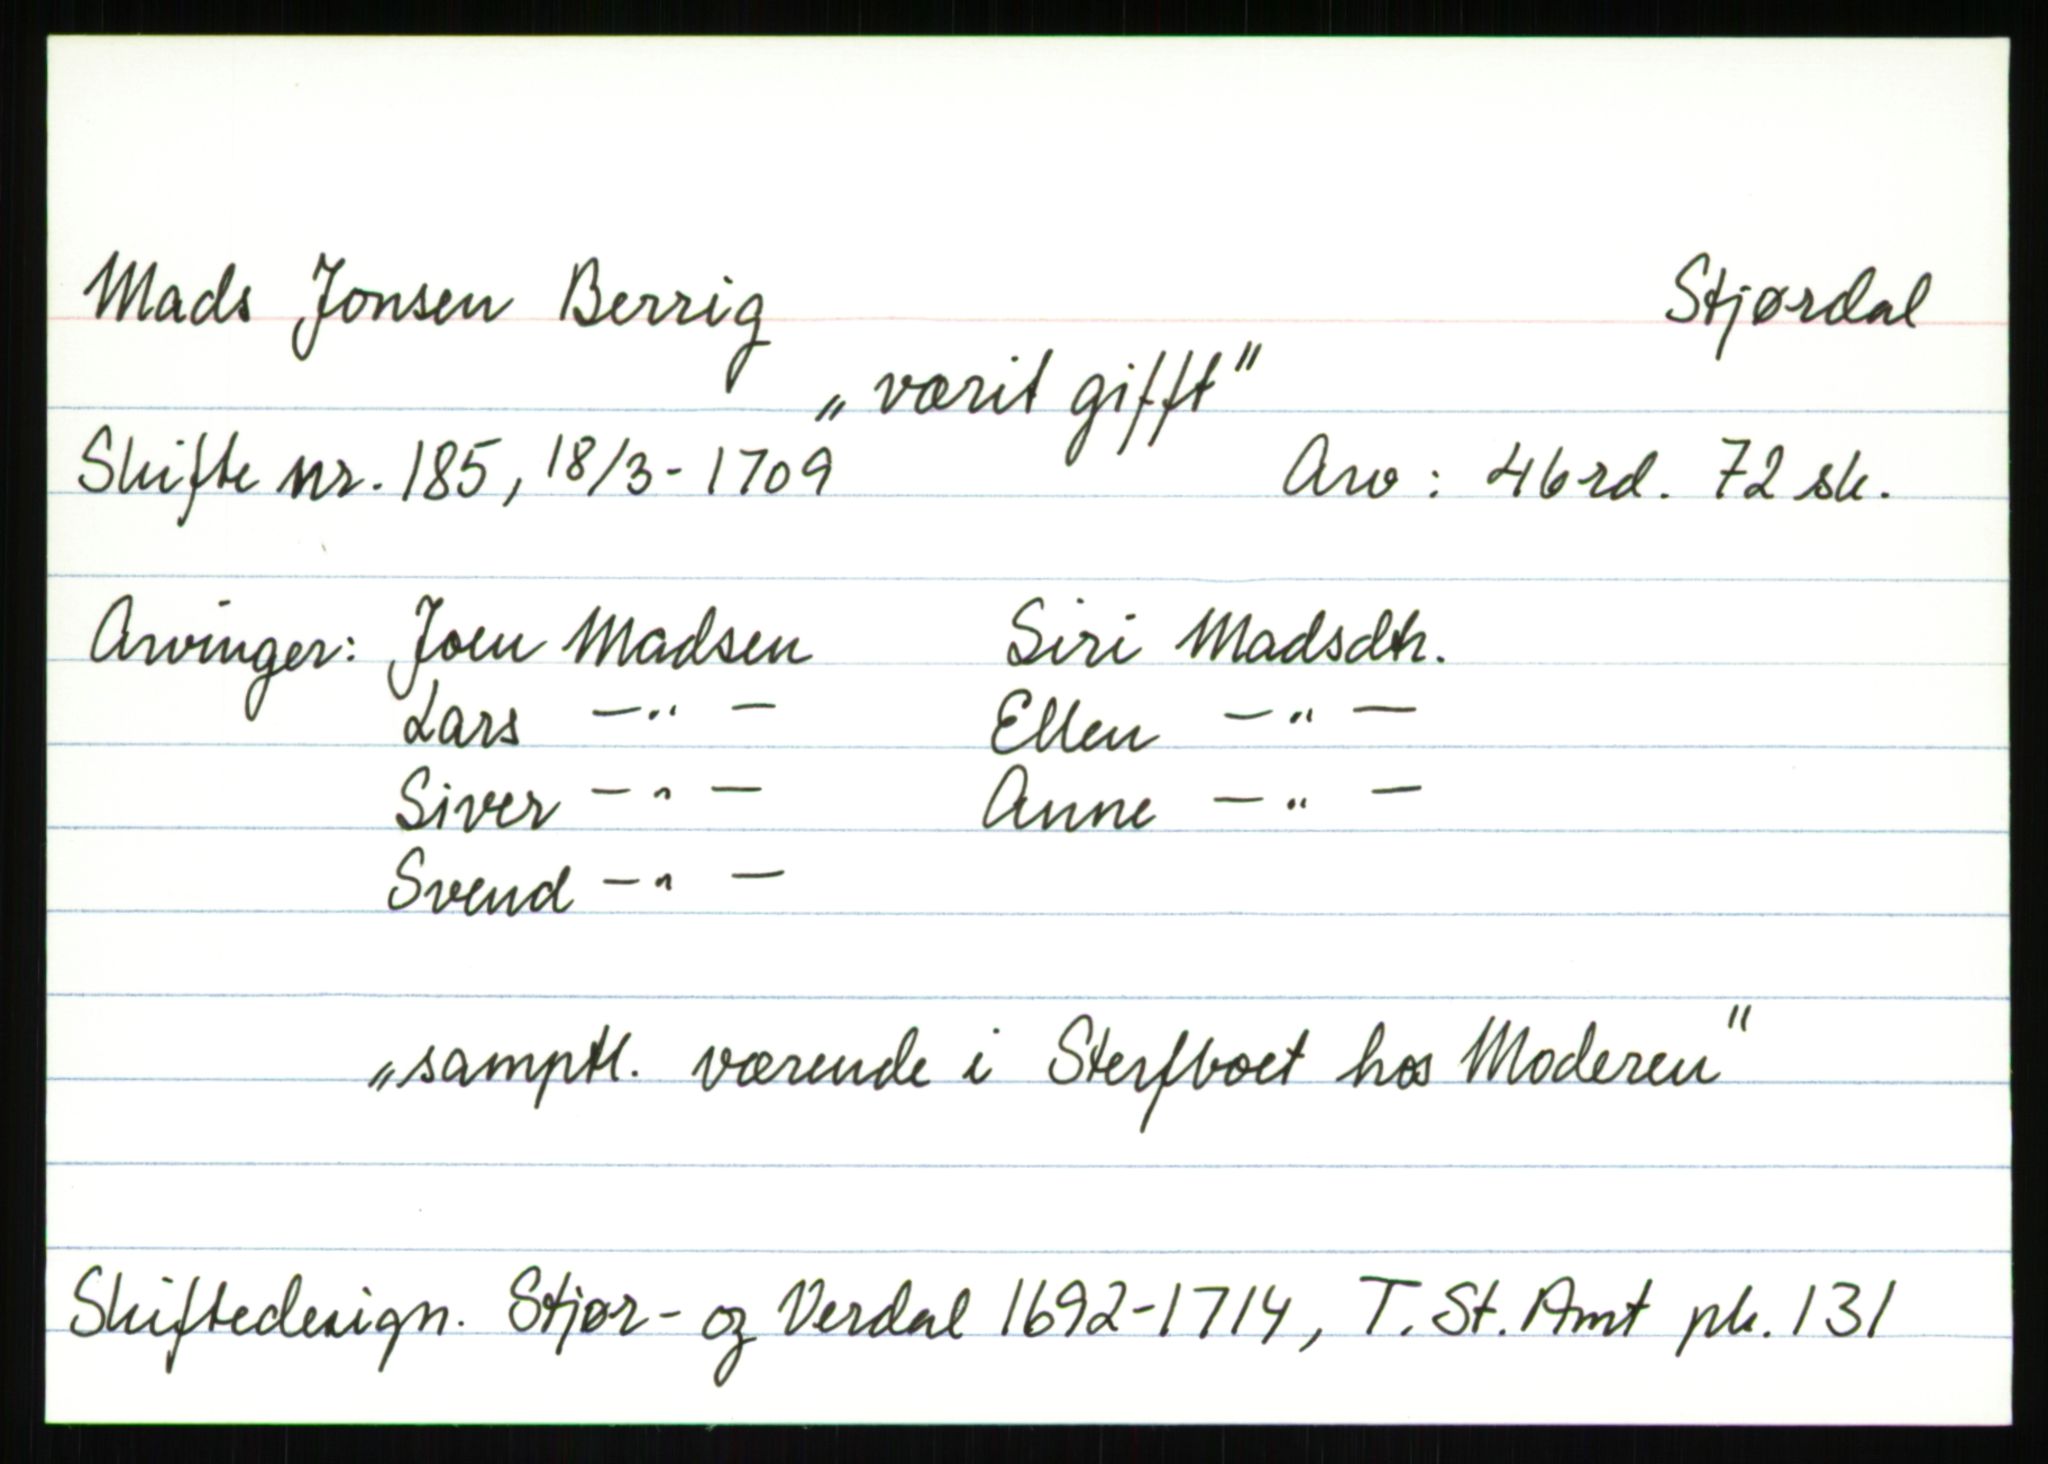 Mads Jonsen Berrig Stjørdal
„værit gifft"
Skifte nr. 185, 18/3-1709 Arv: 46 rd. 72 sk.
Arvinger: Joen Madsen Siri Madsdtr.
Lars —„— Ellen —„—
Siver —„— Anne —„—
Svend —„—
„samptl. værende i Sterfboet hos Moderen"
Skiftedesign. Stjør- og Verdal 1692-1714, T. St. Amt pk. 131